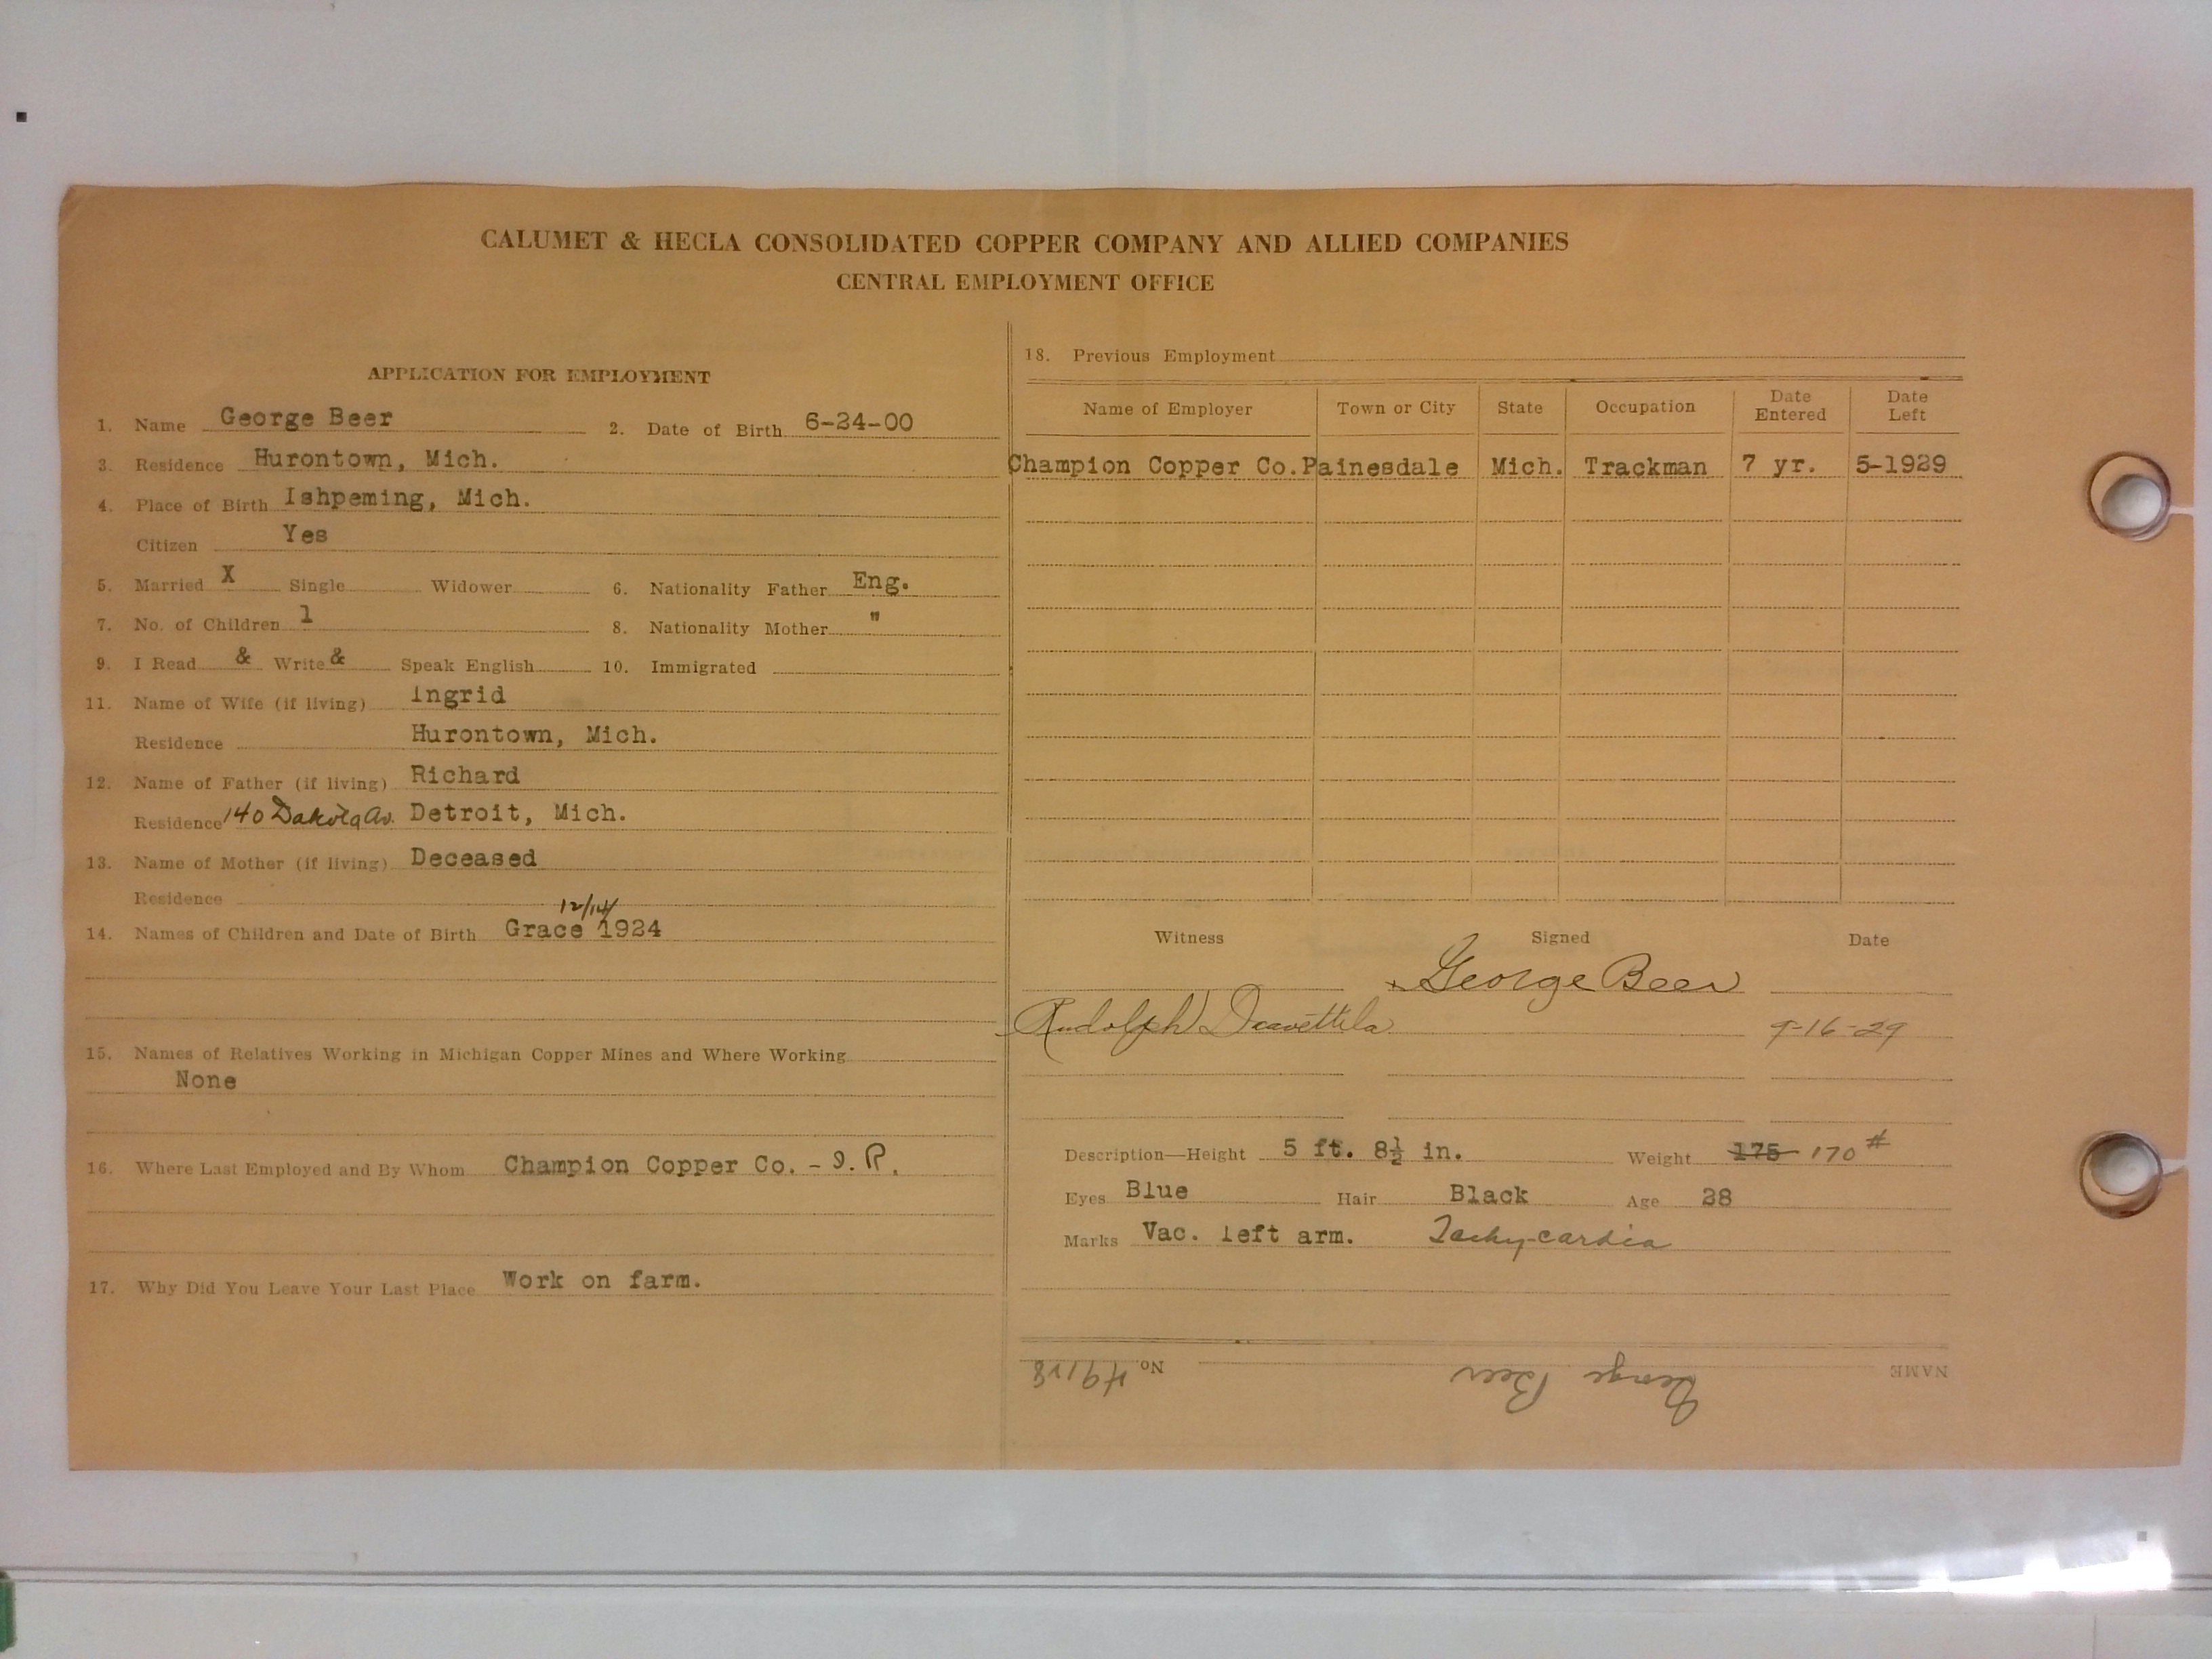 CALUMET & HECLA CONSOLIDATED COPPER COMPANY AND ALLIED COMPANIES
CENTRAL EMPLOYMENT OFFICE
APPLICATION FOR EMPLOYMENT
1. Name George Beer 2. Date of Birth 6-24-00
3. Residence Hurontown, Mich.
4. Place of Birth Ishpeming, Mich.
Citizen Yes
5. Married X Single Widower 6. Nationality Father Eng.
7. No. of Children 1 8. Nationality Mother "
9. I Read & Write & Speak English 10. Immigrated
11. Name of Wife (if living) Ingrid
Residence Hurontown, Mich.
12. Name of Father (if living) Richard
Residence 140 Dakota Av. Detroit, Mich.
13. Name of Mother (if living) Deceased
Residence
12/14/
14. Names of Children and Date of Birth Grace 1924
15. Names of Relatives Working in Michigan Copper Mines and Where Working
None
16. Where Last Employed and By Whom Champion Copper Co. -
17. Why Did You Leave Your Last Place Work on farm.
18. Previous Employment
Name of Employer Town or City State Occupation Date Entered Date Left
Champion Copper Co. Painesdale Mich. Trackman 7 yr. 5-1929
Witness Signed Date
George Beer
Rudolph 9-16-29
Description—Height 5 ft. 8½ in. Weight 175 170 #
Eyes Blue Hair Black Age 28
Marks Vac. left arm. Tachy-cardia
NAME George Beer No.